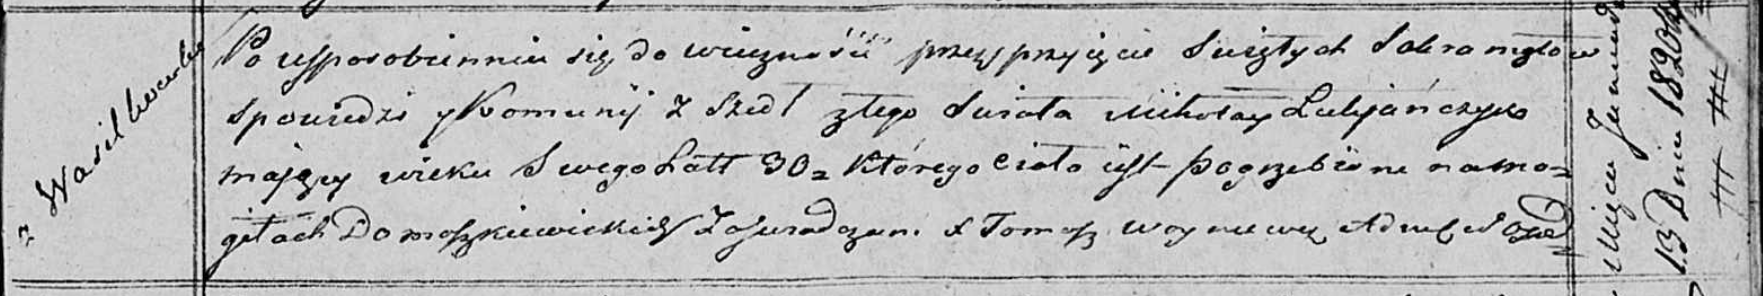 z Wasilkowki
Po usposobienniu się do wieczności przez przyięcie Swiętych Sakramętow
spowiedzi y Komunij Z Szedł ztego Swiata Mikołay Lulijańczyk
mający wieku Swego Latt 30= Którego Ciało iest pogrzebione na mo=
giłach Domaszkiewickich Zaswiadczam X Tomasz Woyniewicz
Miesca Januarii
13 Dnia 1820